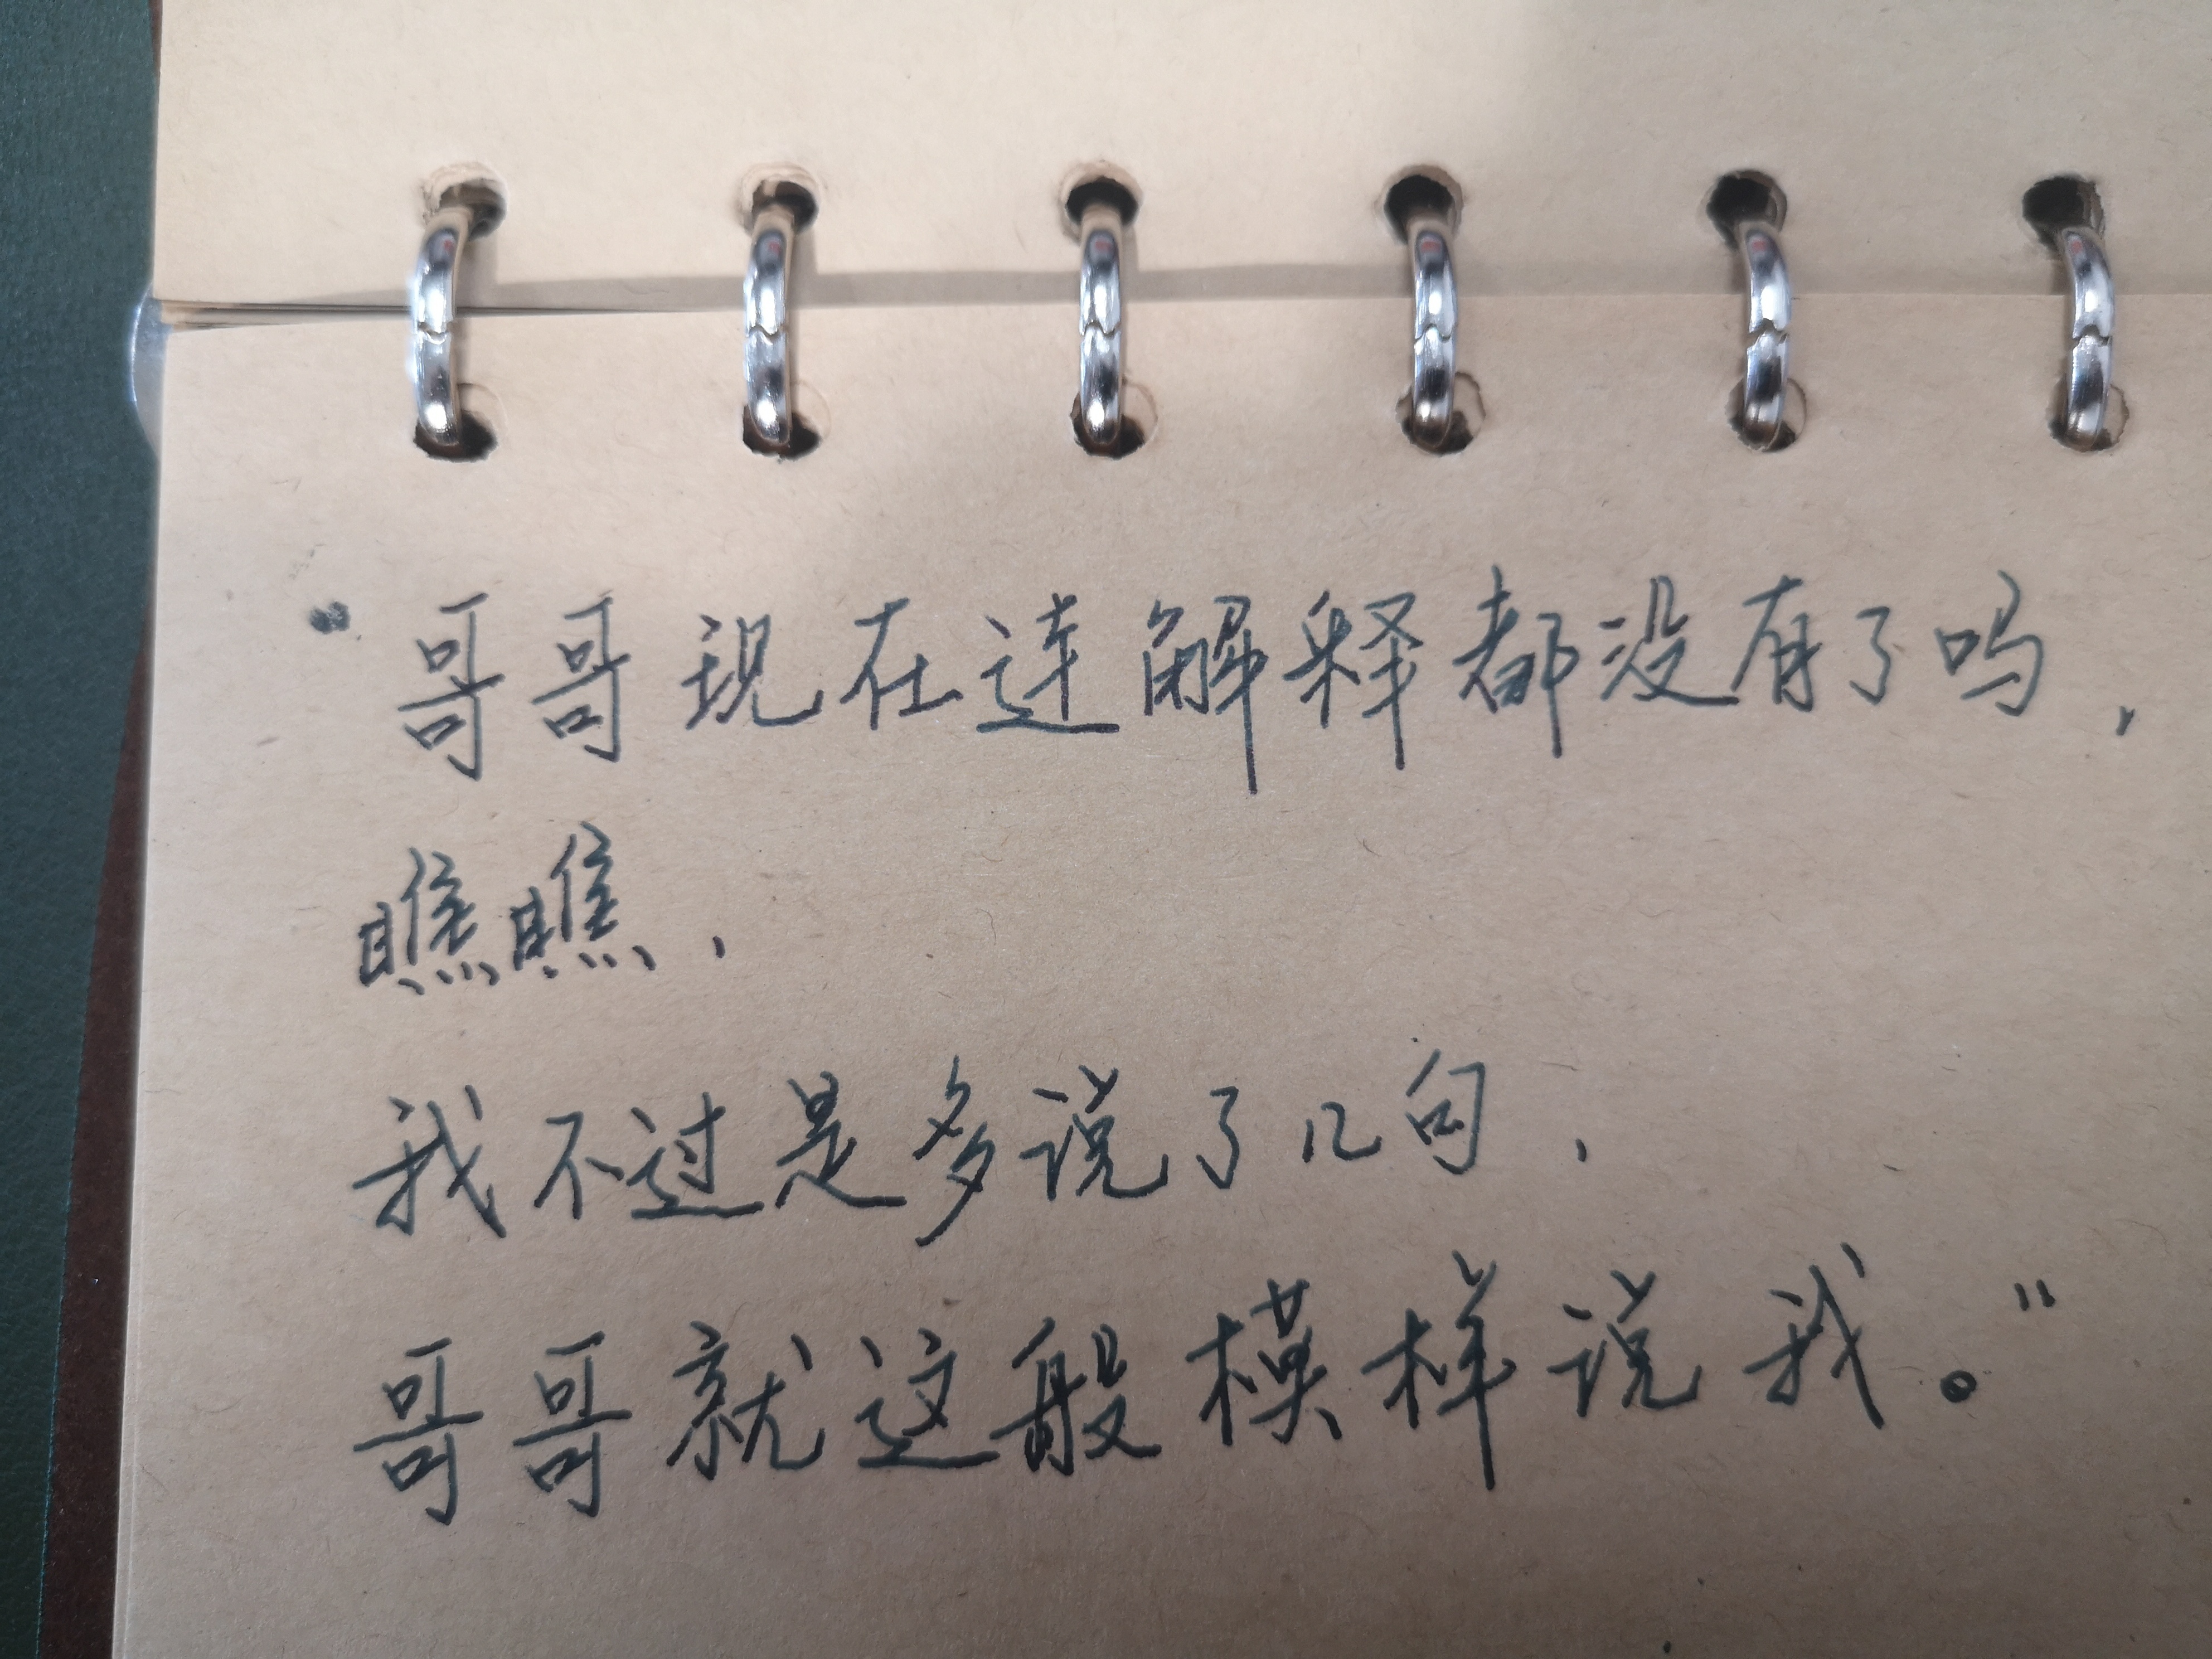 “哥哥现在连解释都没有了吗，
瞧瞧，
我不过是多说了几句，
哥哥就这般模样说我。”